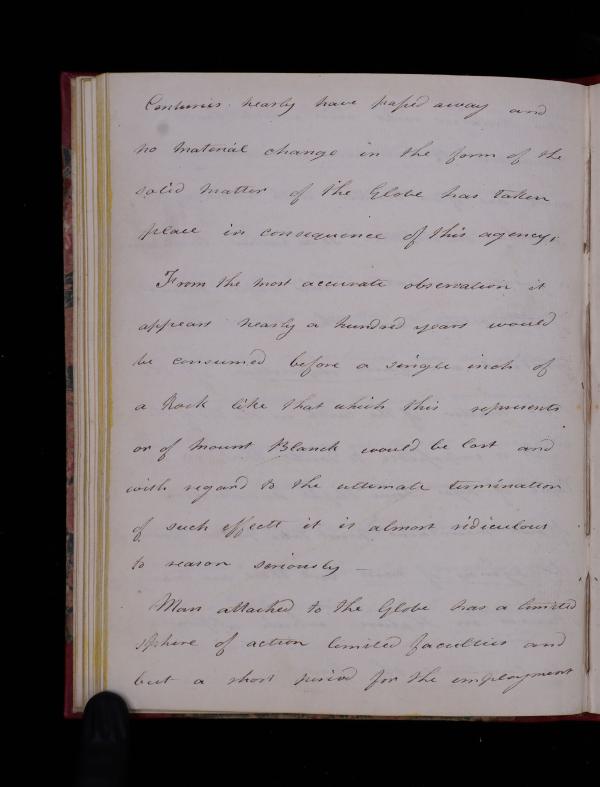 Centuries nearly have passed away and
no material change in the form of the
solid matter of the Globe has taken
place in consequence of this agency;
From the most accurate observation it
appears nearly a hundred years would
be consumed before a single inch of
a Rock like that which this represents
or of Mount Blanck would be lost and
with regard to the ultimate termination
of such effects it is almost ridiculous
to reason seriously —
Man attached to the Globe has a limited
sphere of action limited faculties and
but a short period for the employment